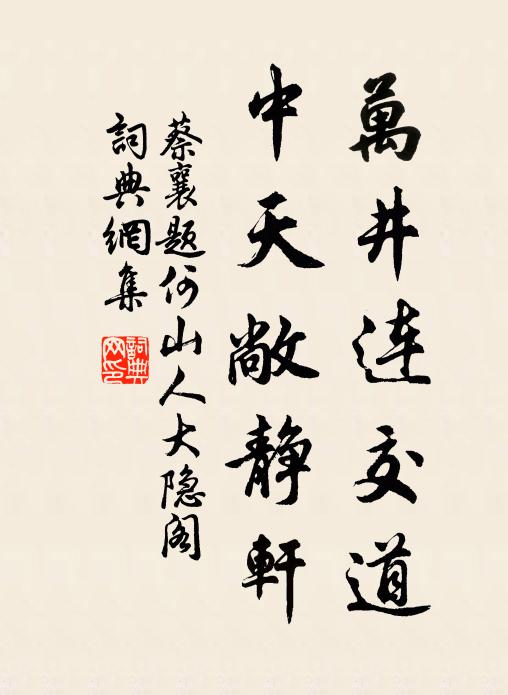 萬井連交道
中天敞静軒
蔡襄題何山人大隐阁
詞典網集
詞典
网印